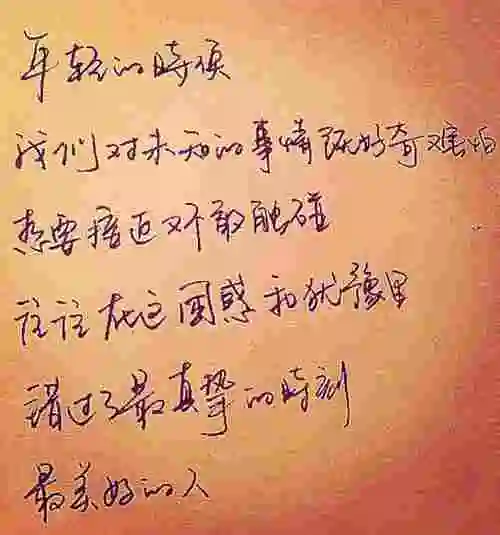 年轻的時候
我们对未知的事情既好奇又害怕
想要接近又不敢触碰
往往在这困惑和犹豫里
错过了最真挚的時刻
最美好的人